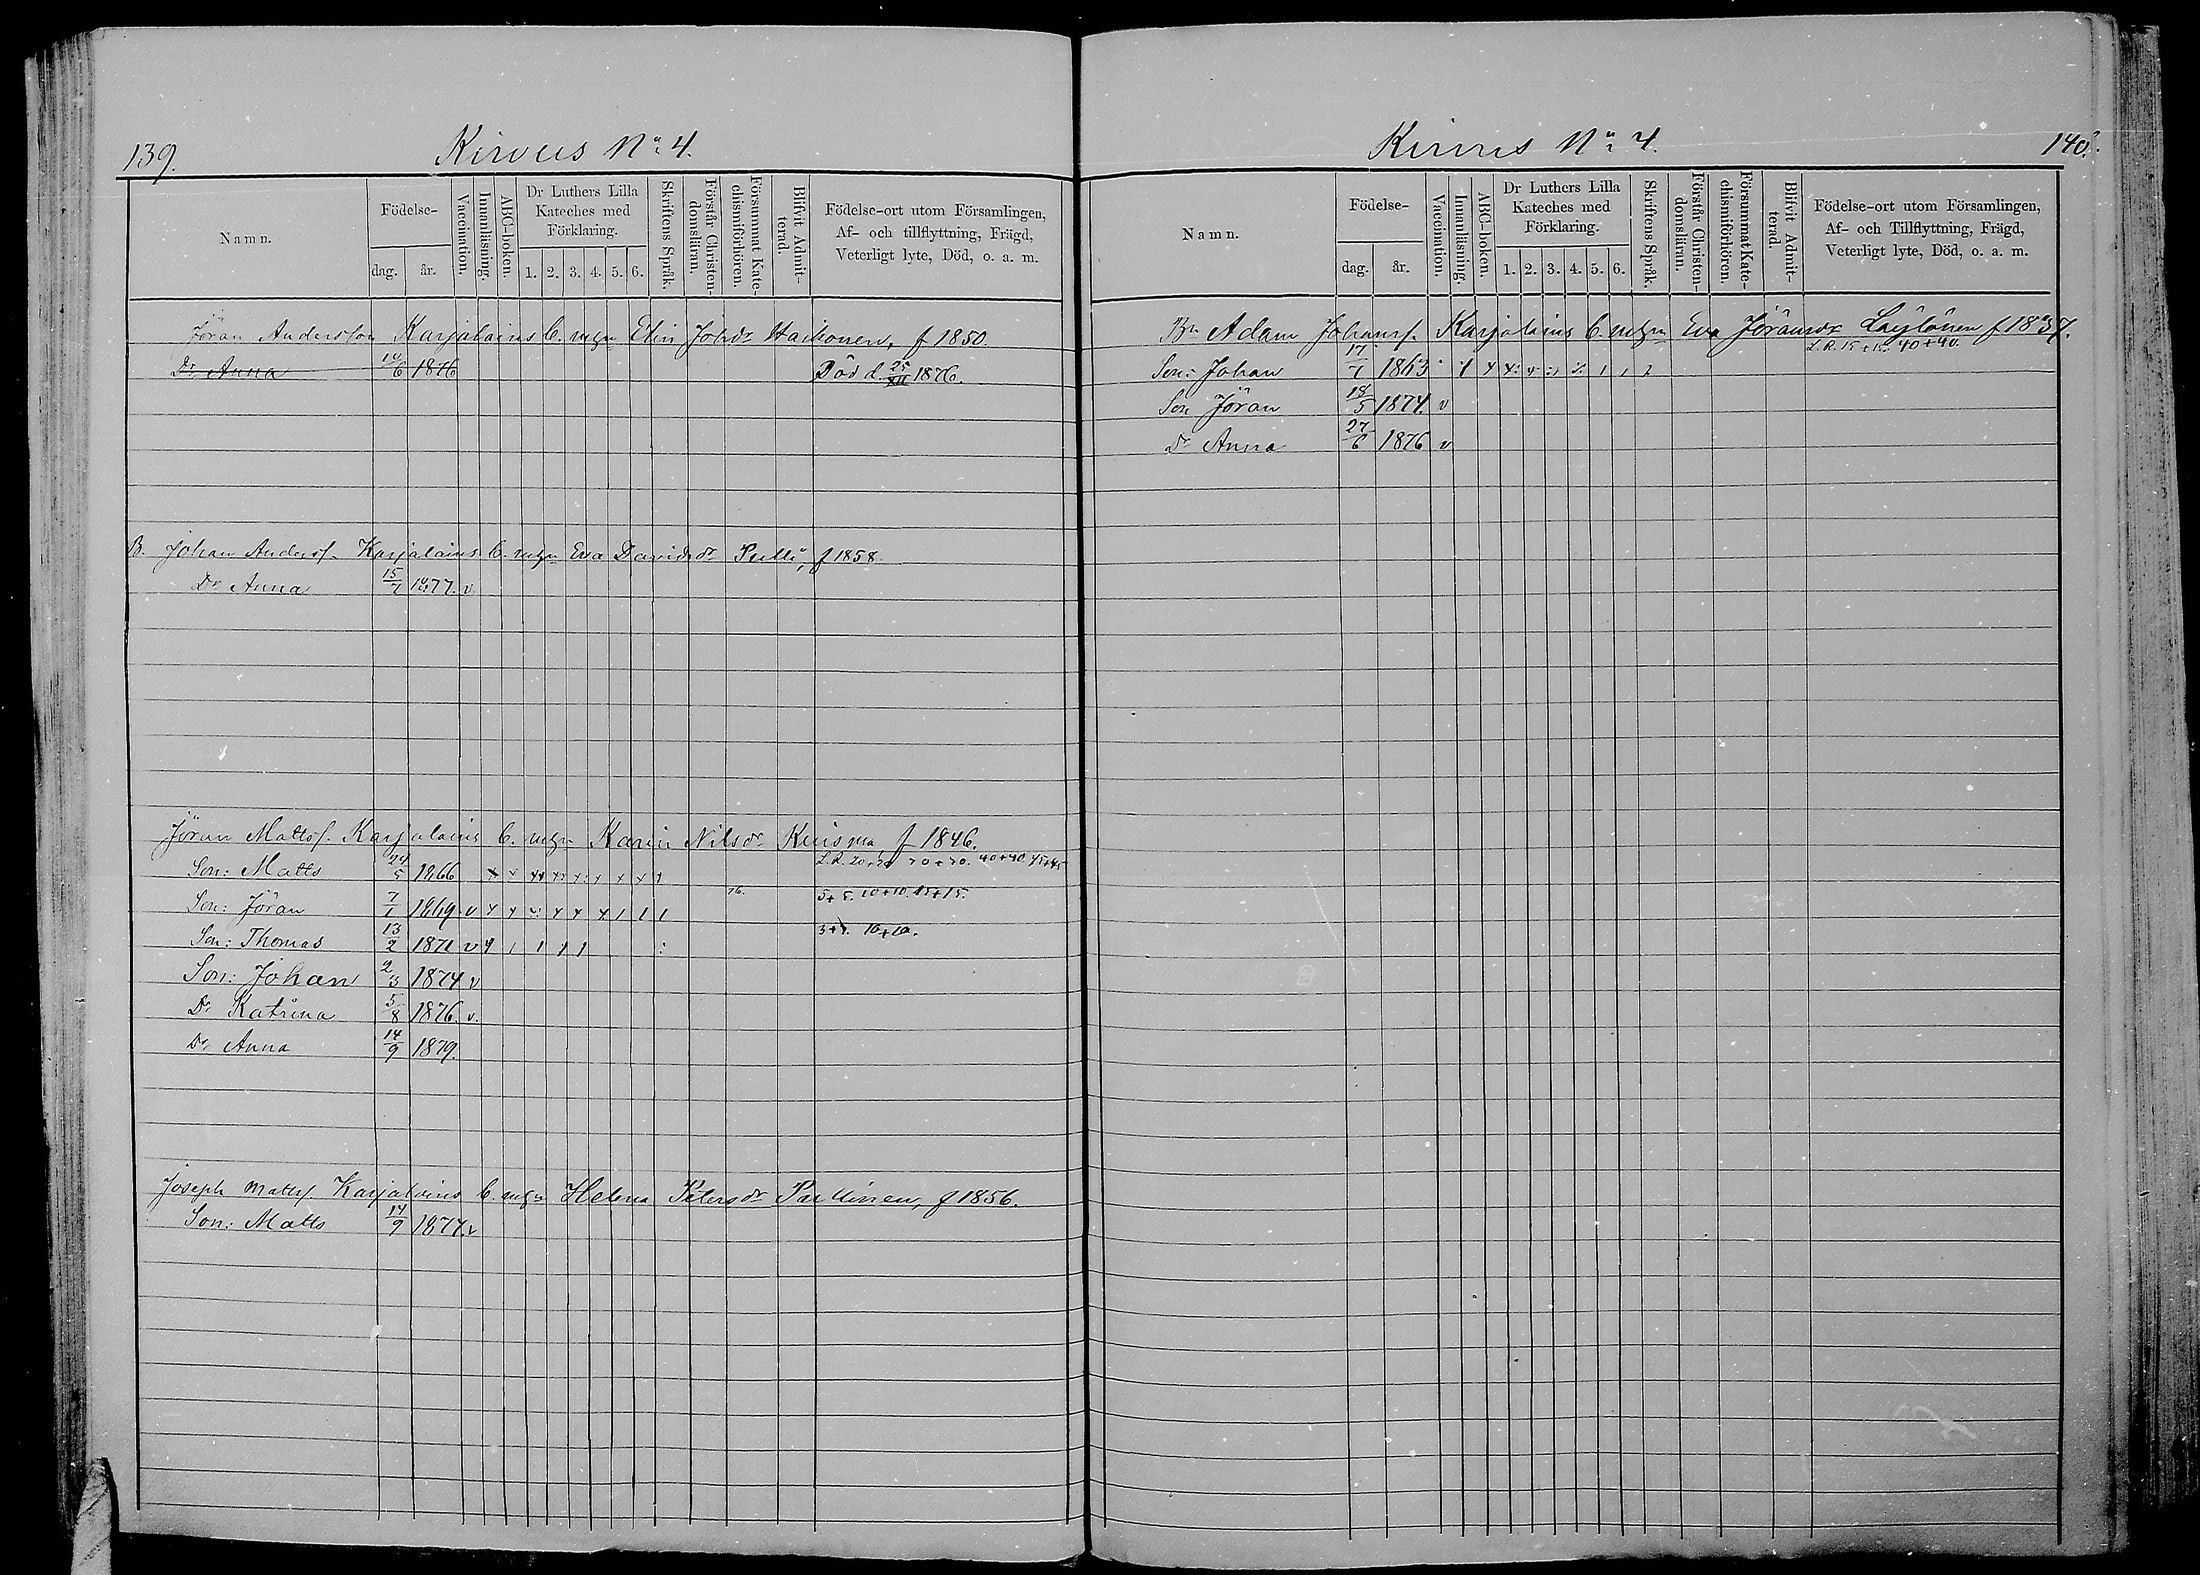 139.
Kirvus No 4.
Namn.
Födelse-
dag.
år.
Vaccination.
Innanläsning.
ABC-boken.
Dr Luthers Lilla Kateches med Förklaring.
1. 2. 3. 4. 5. 6.
Skriftens Språk.
Förstår Christen-domsläran.
Försummat Kate-chismiförhören.
Blifvit Admit-terad.
Födelse-ort utom Församlingen,
Af- och tillflyttning, Frägd,
Veterligt lyte, Död, o. a. m.
Jöran Andersson Karjalains b. m. Elin Johdr Haikonen, f 1850.
Dr Anna 14/6 1876 Död d. 25/XII 1876.
B. Johan Andersf. Karjalains b. m. Eva Davidsdr Pulli, f 1858.
Dr Anna 15/7 1877. v
Jöran Mattsf. Karjalains b. m. Karin Nilsdr Kuisma f 1846.
Son: Matts 24/5 1866 40+40 45+45
Son: Jöran 7/1 1869 v 76. 5+5. 10+10. 15+15.
Son: Thomas 13/2 1871 v 10+10.
Son: Johan 2/3 1874 v
Dr Katrina 5/8 1876. v.
Dr Anna 14/9 1879.
Joseph Mattsf. Karjalains b. m. Helena Petersdr Partinen, f 1856.
Son: Matts 14/9 1877. v
Kirvus No 4.
140.
Namn.
Födelse-
dag.
år.
Vaccination.
Innanläsning.
ABC-boken.
Dr Luthers Lilla Kateches med Förklaring.
1. 2. 3. 4. 5. 6.
Skriftens Språk.
Förstår Christen-domsläran.
Försummat Kate-chismiförhören.
Blifvit Admit-terad.
Födelse-ort utom Församlingen,
Af- och Tillflyttning, Frägd,
Veterligt lyte, Död, o. a. m.
Bn Adam Johansf. Karjalains b. m. Eva Jöransdr f 1837.
Son: Johan 17/7 1863 L.R. 15+15. 40+40.
Son Jöran 18/5 1874. v
Dr Anna 27/6 1876 v